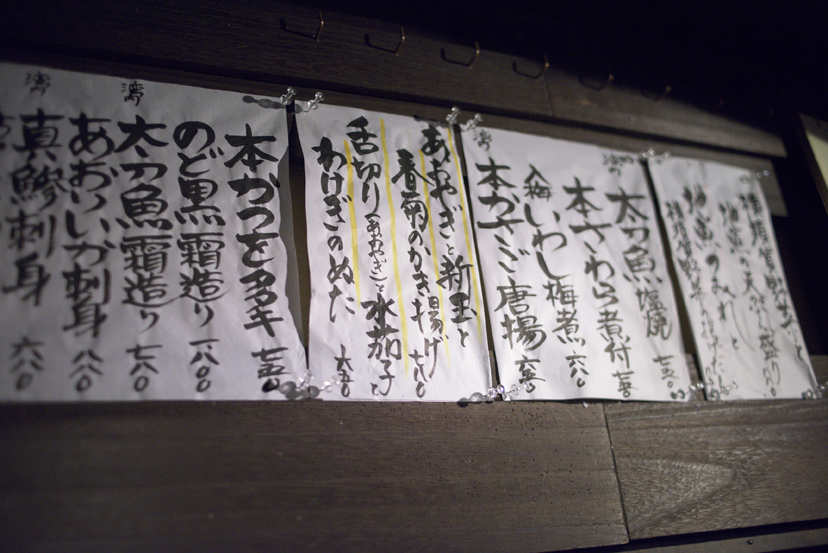 横須賀野菜と
地魚の天ぷら盛り
地魚のつみれと
太刀魚塩焼
本さわら煮付
入梅いわし梅煮 六八〇
湾 本かさご唐揚
あおやぎと新玉と
春菊のかき揚げ 七八〇
舌切り(あおやぎ)と水茄子と
わけぎのぬた 六八〇
本かつをタタキ 七五〇
のど黒霜造り 一八〇〇
湾 太刀魚霜造り 七八〇
あおりいか刺身 八八〇
湾 真鯵刺身 六八〇